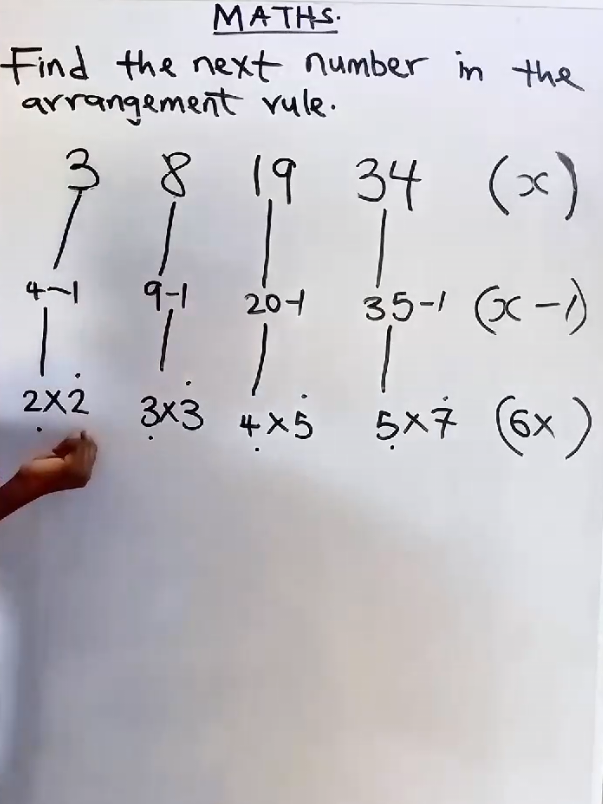 MATHS.
Find the next number in the
arrangement rule.
3 8 19 34 (x)
4-1 9-1 20-1 35-1 (x-1)
2x2 3x3 4x5 5x7 (6x )